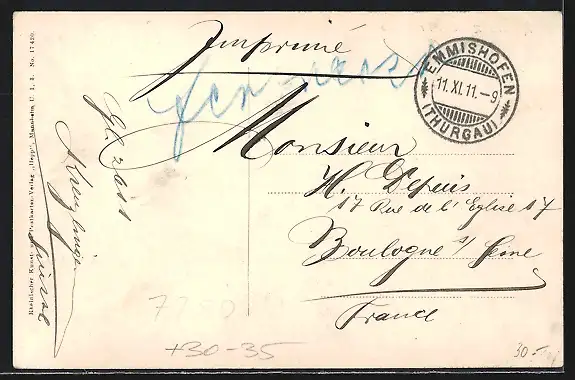 Imprimé
EMMISHOFEN
11.XI.11.-9
(THURGAU)
Monsieur
H. Depuis
17 Rue de l'Eglise 17
Boulogne s/ Seine
France
Kreuzlingen
Suisse
Rheinischer Kunst- und Postkarten-Verlag „Hepp", Mannheim, U 1, 3. No. 17420
+30-35
30.-